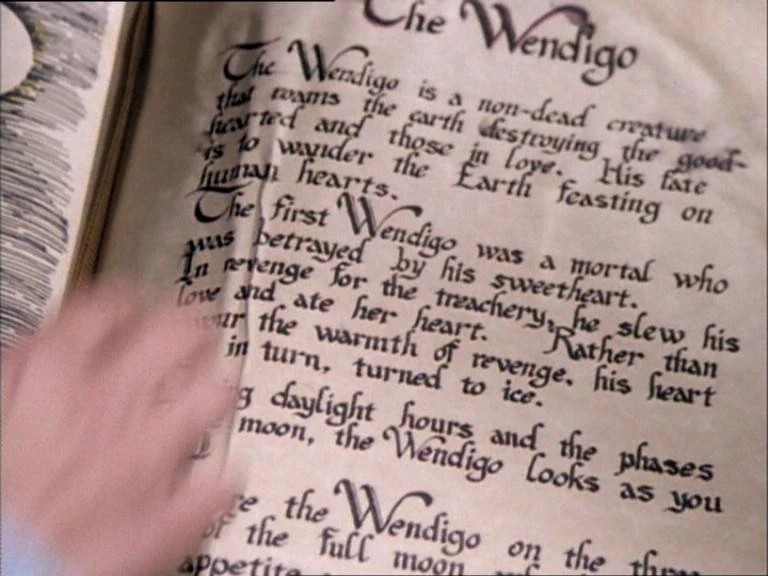 The Wendigo
The Wendigo is a non-dead creature
that roams the earth destroying the good-
hearted and those in love. His fate
is to wander the Earth feasting on
human hearts.
The first Wendigo was a mortal who
was betrayed by his sweetheart.
In revenge for the treachery, he slew his
love and ate her heart. Rather than
the warmth of revenge, his heart
in turn, turned to ice.
daylight hours and the phases
moon, the Wendigo looks as you
the Wendigo on the
of the full moon
appetite